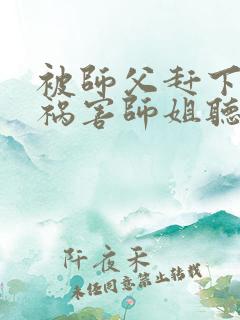 被師父赶下
祸害師姐聽
阡夜禾
未经同意禁止转载